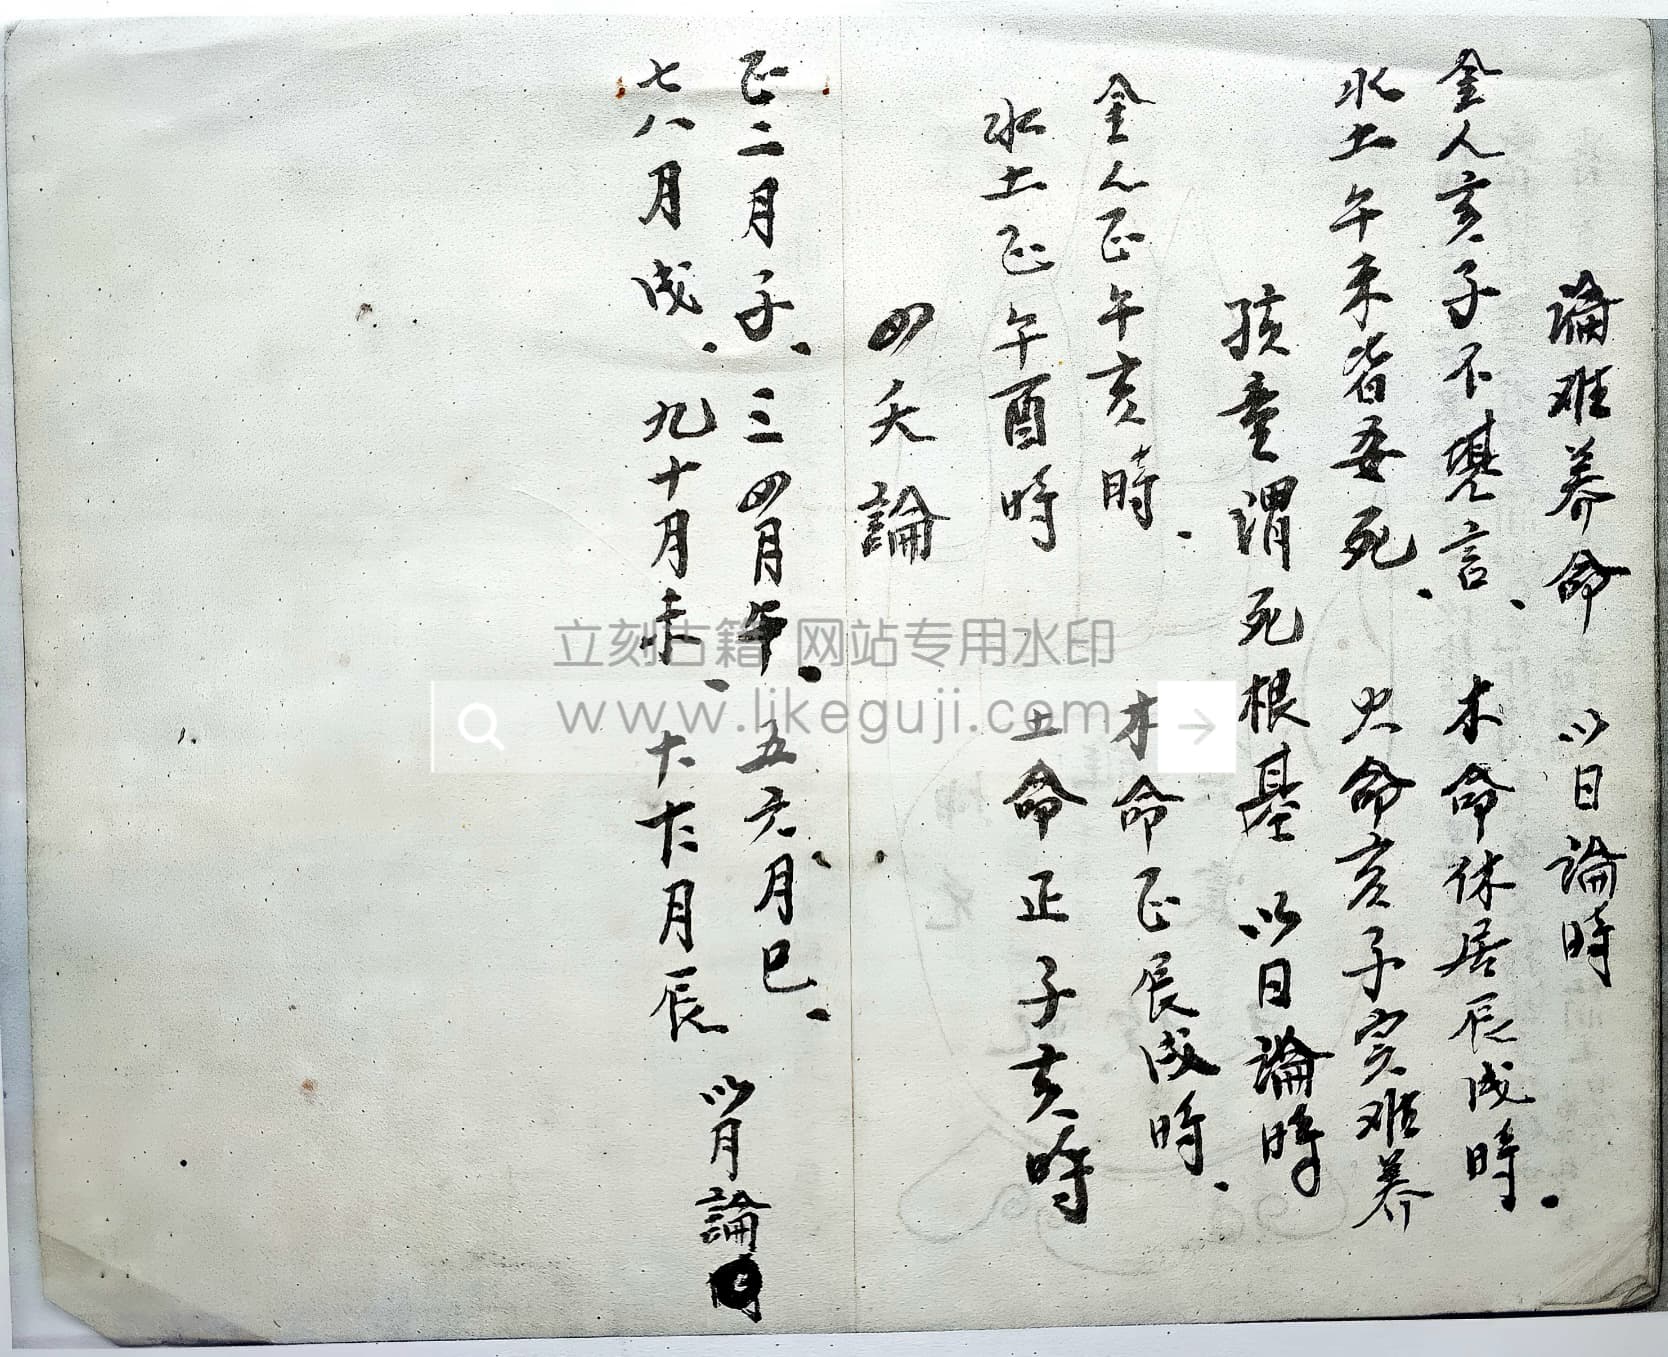 論难养命　以日論時
金人亥子不 言、木命休居辰戌時．
水土午未皆 死．火命亥子实难养
孩童谓死根基　以日論時
金人正午亥時．木命正辰戌時．
水土正午酉時　土命正子亥時
四夭論
正二月子．三四月午．五六月巳．
七八月戌．九十月未．十 月辰　以月論
立刻古籍 网站专用水印
www.likeguji.com